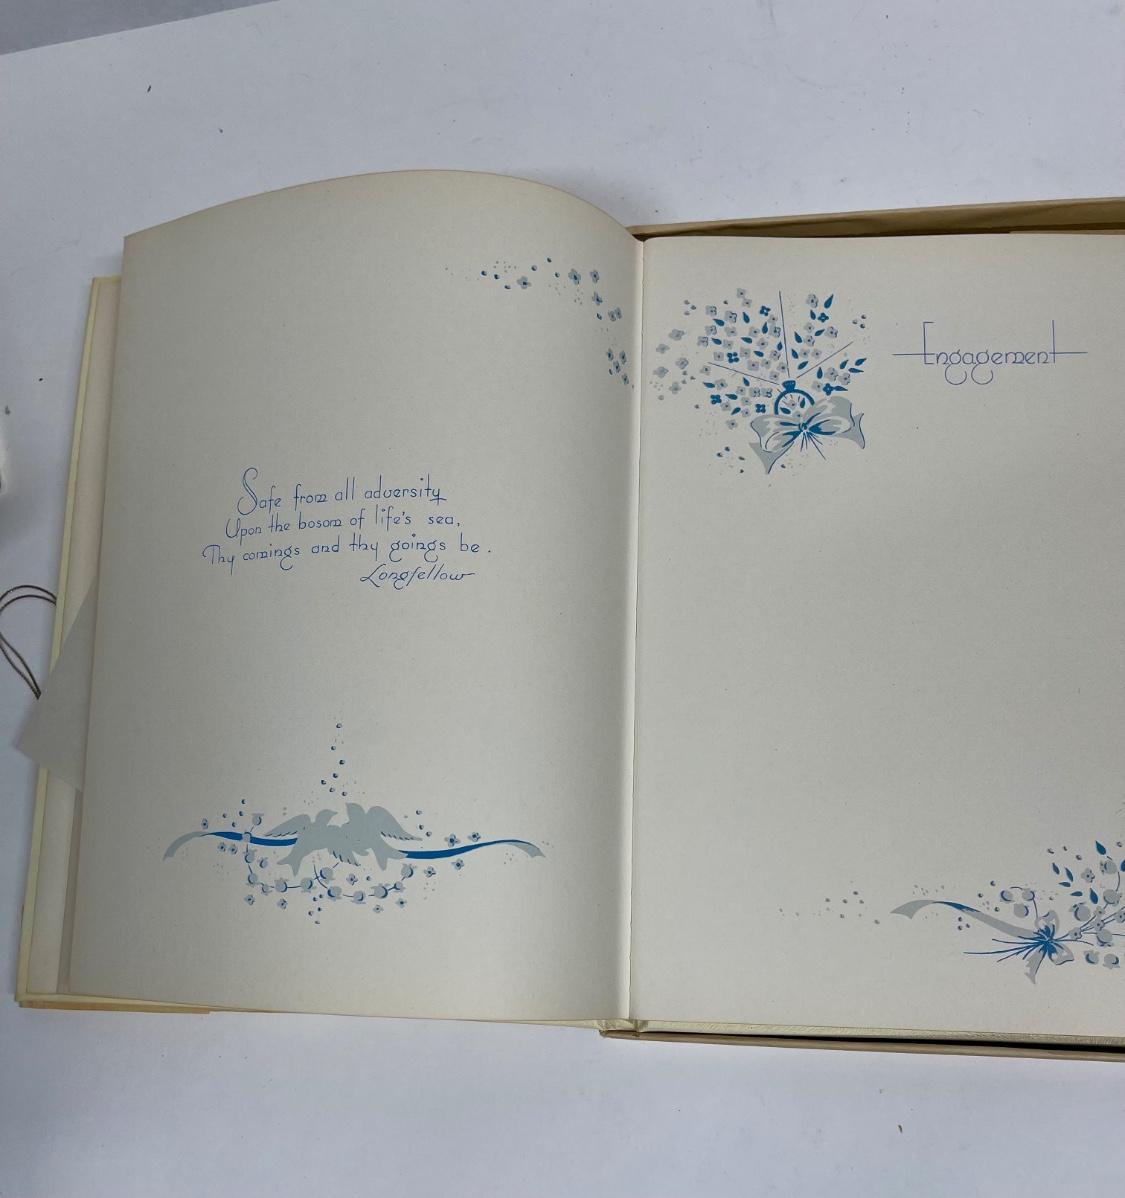 Safe from all adversity
Upon the bosom of life's sea,
Thy comings and thy goings be.
Longfellow
Engagement